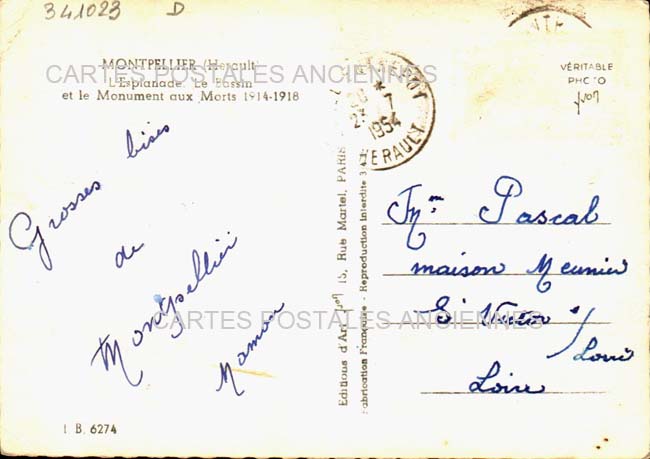 341023 D
MONTPELLIER (Hérault)
L'Esplanade. Le Bassin
et le Monument aux Morts 1914-1918
CARTES POSTALES ANCIENNES
Grosses bises
de
Montpellier
Maman
I. B. 6274
Editions d'Art Yvon, 15, Rue Martel, PARIS
Fabrication Française - Reproduction Interdite
7
1954
HERAULT
VÉRITABLE
PHOTO
yvon
Pascal
maison Meunier
St Victor s/
Loire
Loire
CARTES POSTALES ANCIENNES